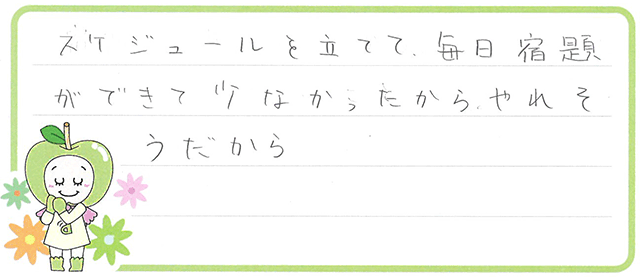 スケジュールを立てて、毎日宿題
ができて少なかったから、やれそ
うだから